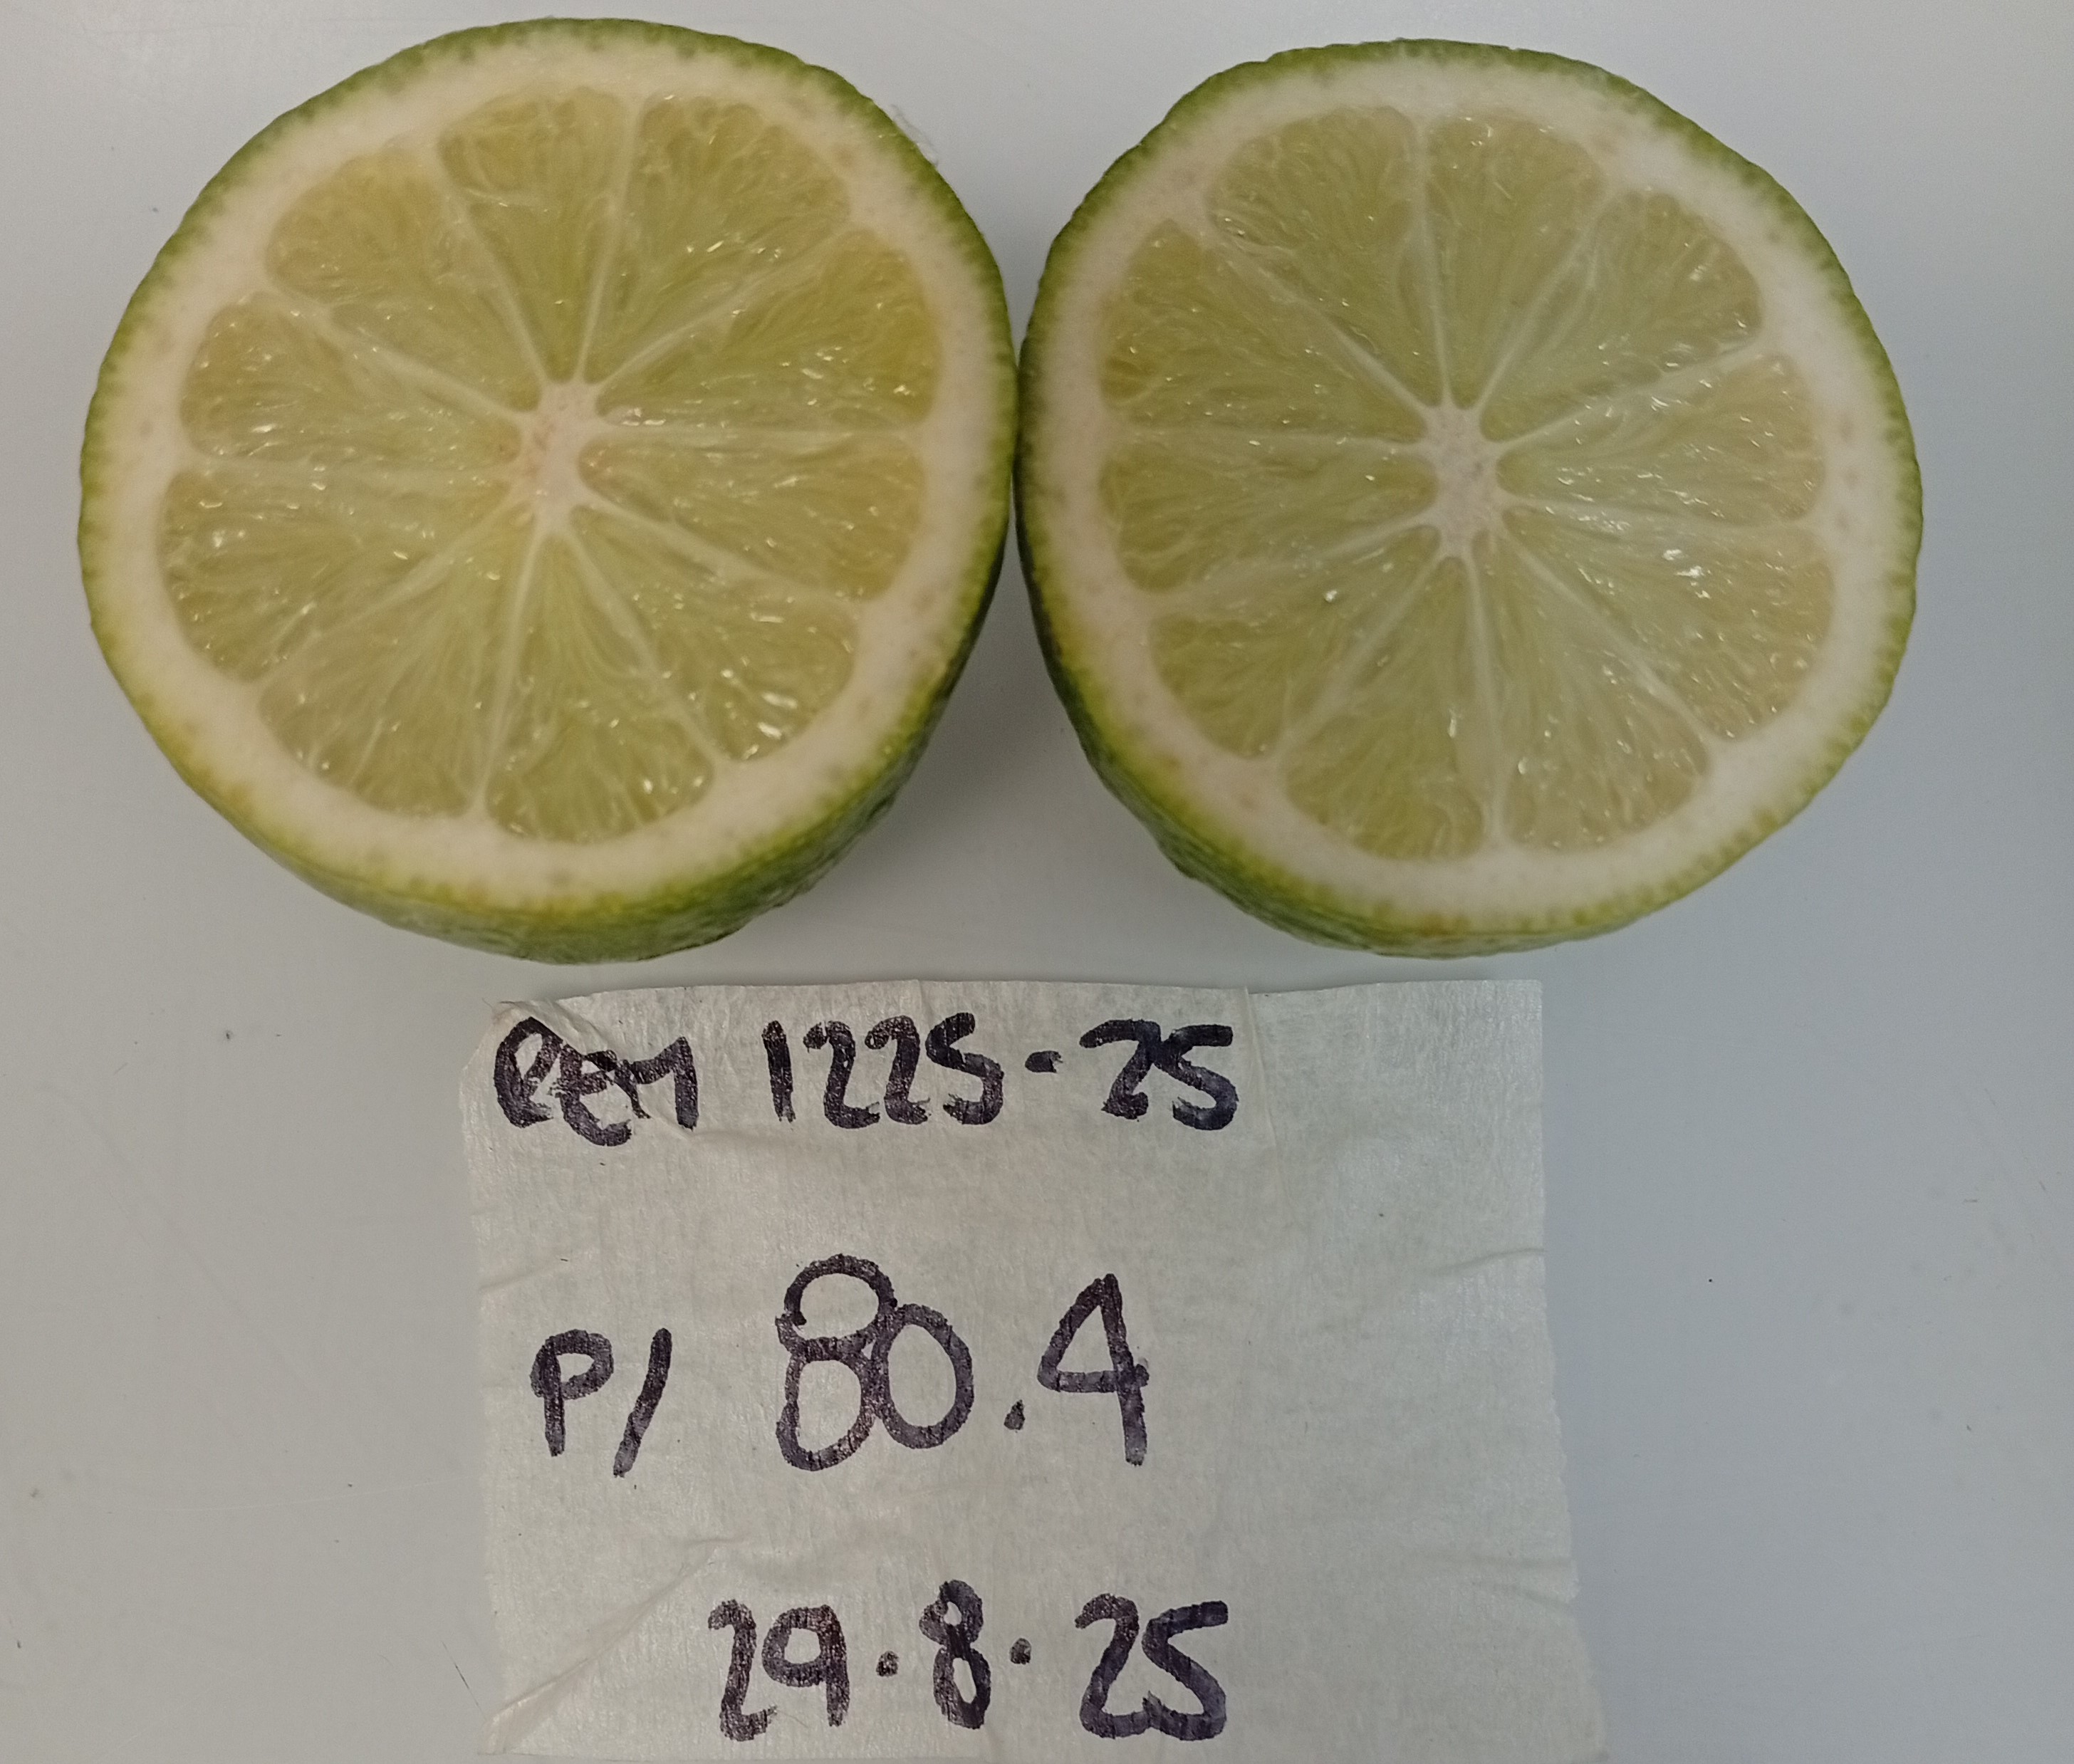 REM 1225-25
P/ 80.4
29.8.25